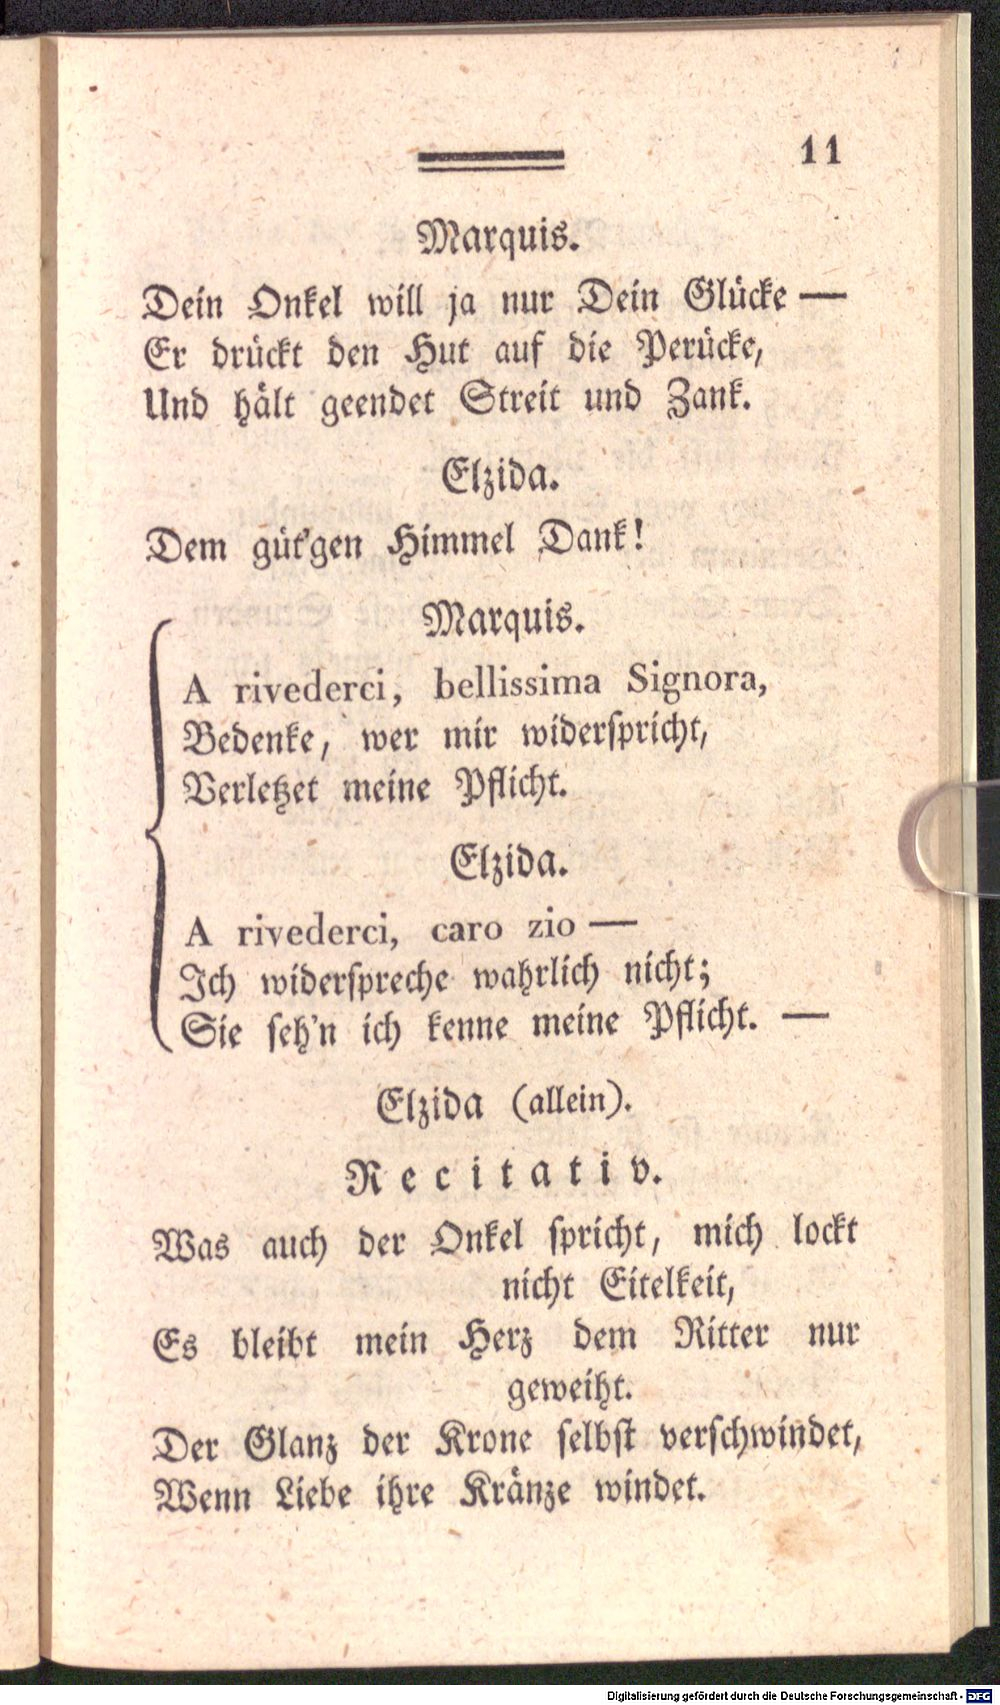 11
Marquis.
Dein Onkel will ja nur Dein Glücke —
Er drückt den Hut auf die Perücke,
Und hält geendet Streit und Zank.
Elzida.
Dem güt'gen Himmel Dank!
Marquis.
A rivederci, bellissima Signora,
Bedenke, wer mir widerspricht,
Verletzet meine Pflicht.
Elzida.
A rivederci, caro zio —
Ich widerspreche wahrlich nicht;
Sie seh'n ich kenne meine Pflicht. —
Elzida (allein).
Recitativ.
Was auch der Onkel spricht, mich lockt
nicht Eitelkeit,
Es bleibt mein Herz dem Ritter nur
geweiht.
Der Glanz der Krone selbst verschwindet,
Wenn Liebe ihre Kränze windet.
Digitalisierung gefördert durch die Deutsche Forschungsgemeinschaft - DFG